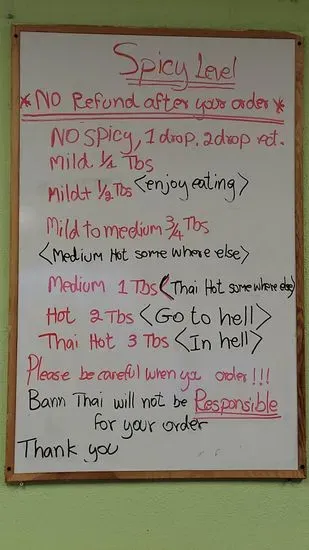 Spicy Level
*NO Refund after your order*
NO Spicy, 1 drop, 2 drop ect.
Mild 1/4 Tbs
Mild+ 1/2 Tbs <enjoy eating>
Mild to medium 3/4 Tbs
<Medium Hot some where else>
Medium 1 Tbs (Thai Hot some where else)
Hot 2 Tbs <Go to hell>
Thai Hot 3 Tbs <In hell>
Please be careful when you order!!!
Bann Thai will not be Responsible
for your order
Thank you